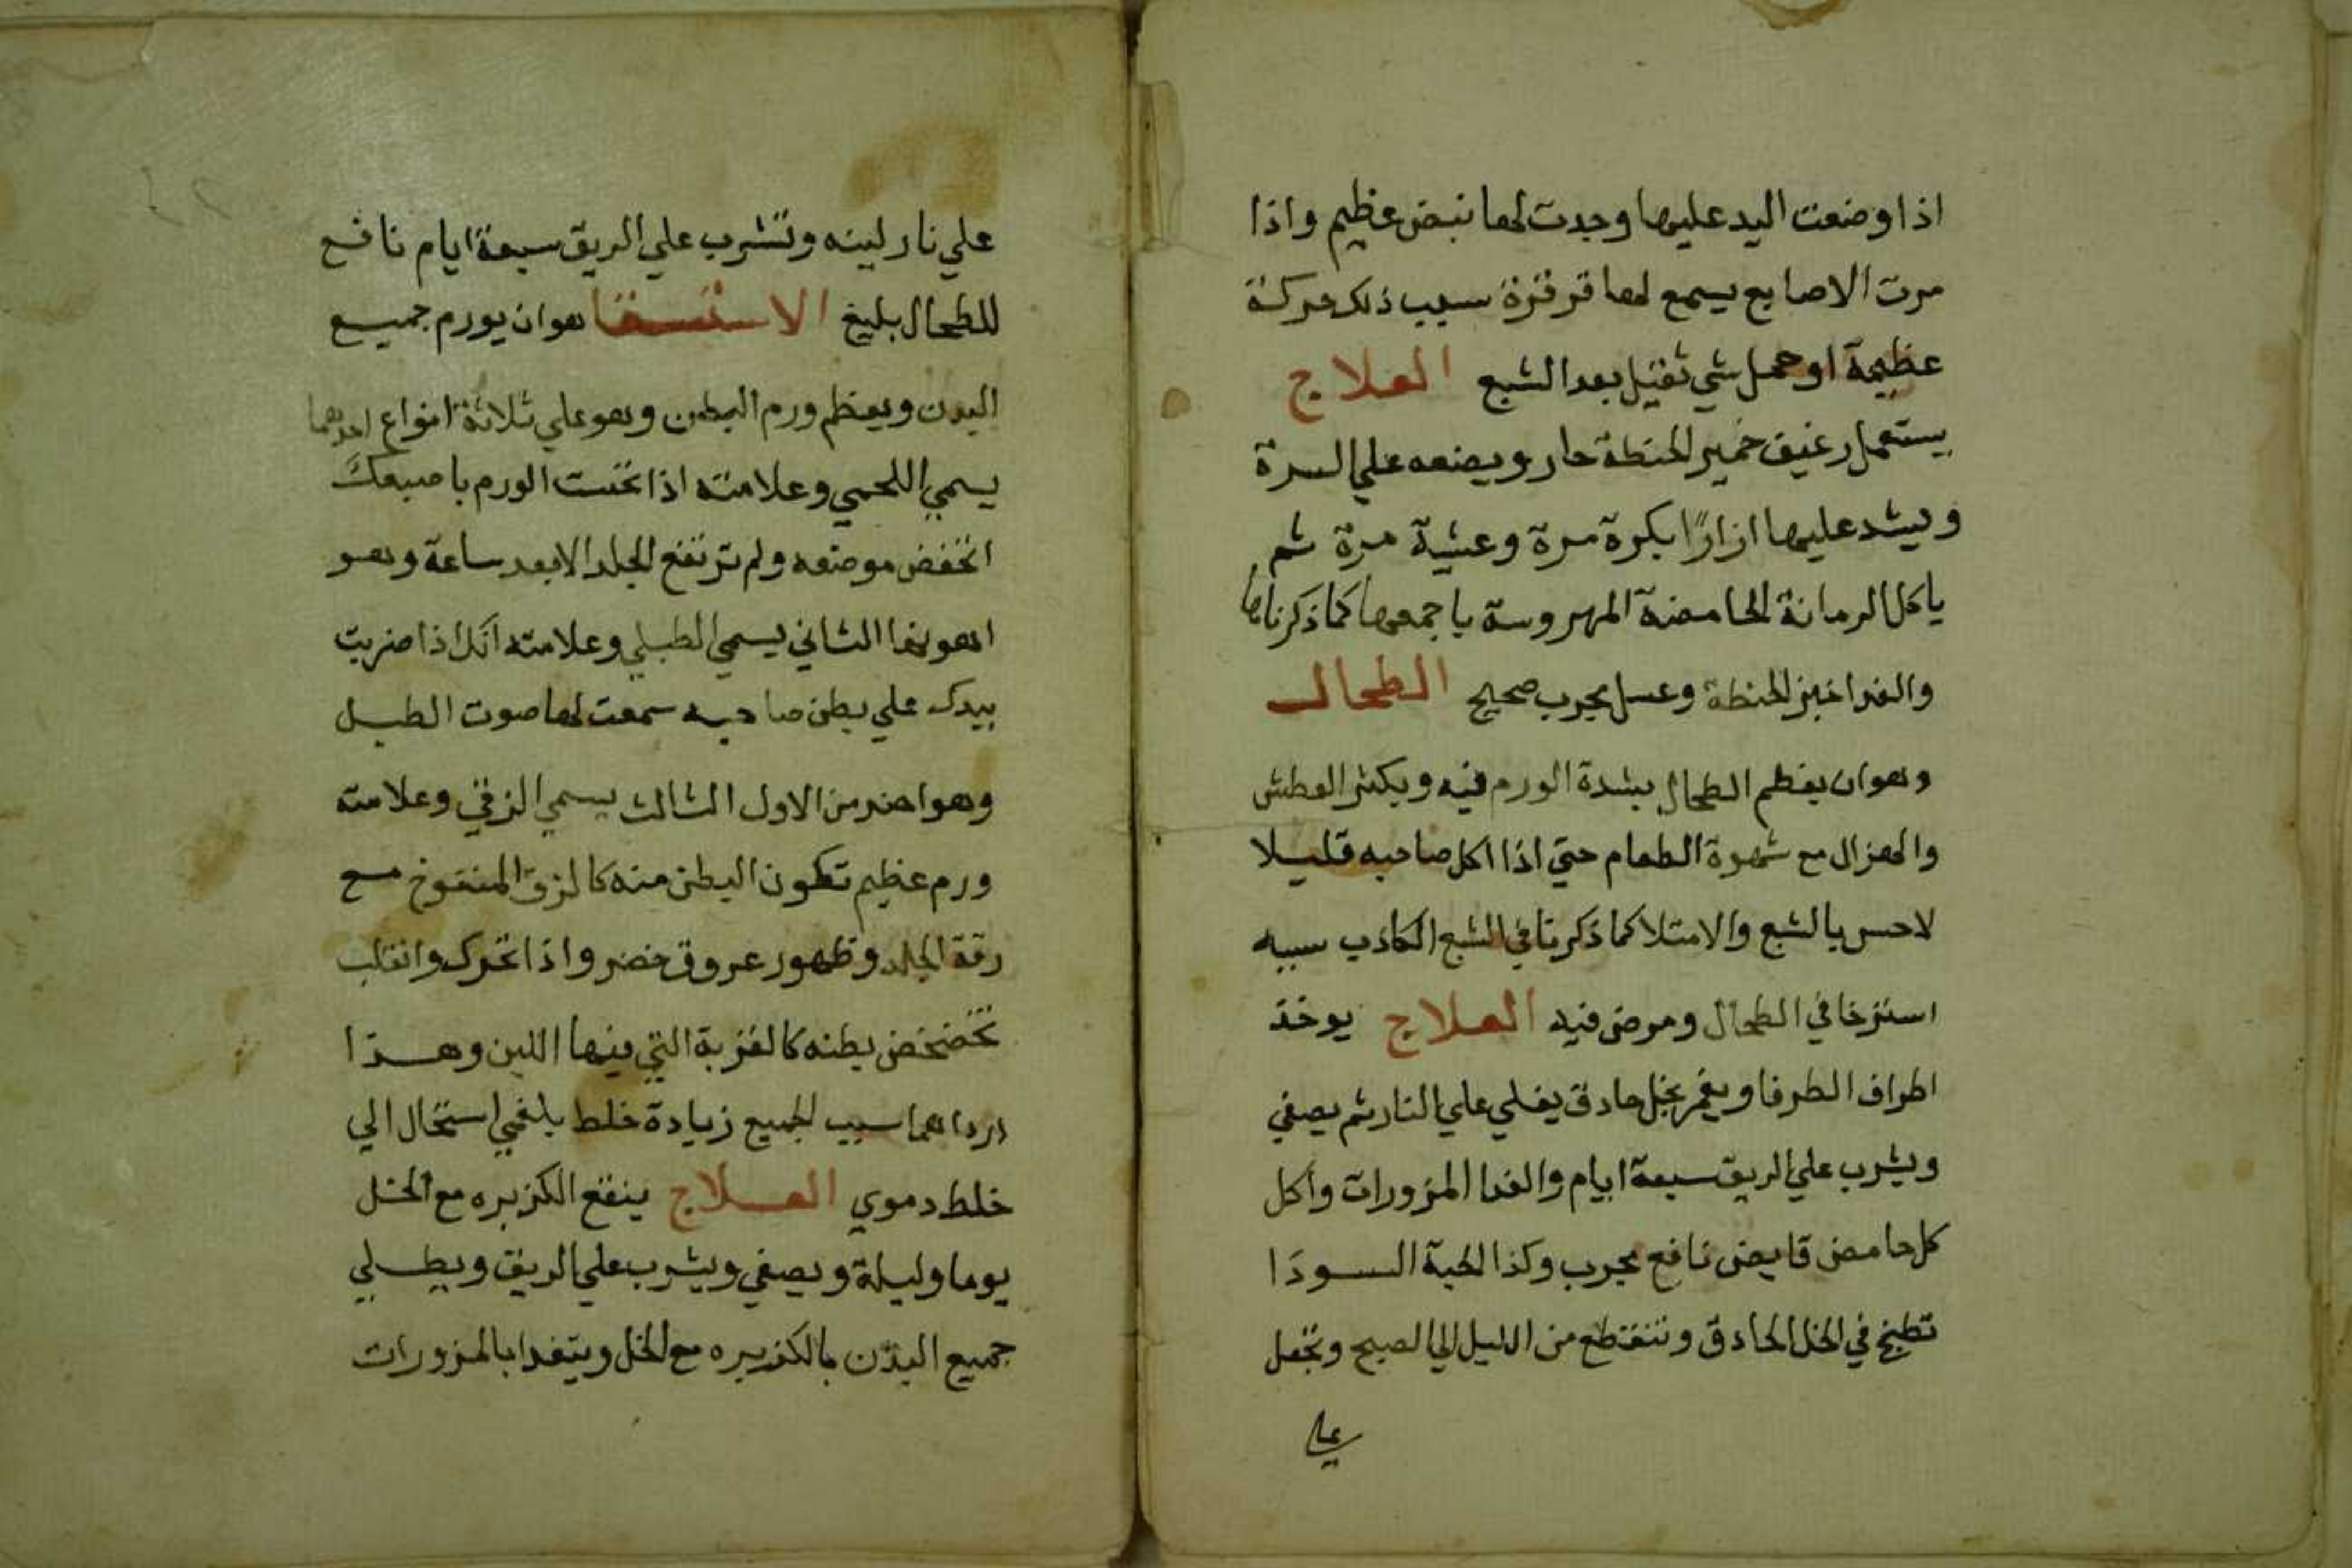 اذا وضعت اليد عليها وجدت لها نبض عظيم واذا
مرت الاصابع يسمع لها قرقرة سبب ذلك حركة
عظيمة او حمل شي ثقيل بعد الشبع العلاج
يستعمل رغيف خمير الحنطة حار ويضعه علي السرة
ويشد عليها ازارًا بكرة مرة وعشية مرة ثم
ياكل الرمانة الحامضة المهروسة باجمعها كما ذكرناها
والغدا خبز الحنطة وعسل مجرب صحيح الطحال
وهو ان يعظم الطحال بشدة الورم فيه ويكثر العطش
والهزال مع شهوة الطعام حتي اذا اكل صاحبه قليلا
لاحس بالشبع والامتلا كما ذكرنا في الشبع الكاذب سببه
استرخا في الطحال ومرض فيه العلاج يوخذ
اطراف الطرفا ويغمر بخل حادق يغلي علي النار ثم يصفي
ويشرب علي الريق سبعة ايام والغدا المزورات واكل
كل حامض قابض نافع مجرب وكذا الحبة السودَا
تطبخ في الخل الحادق وتنقطع من الليل الي الصبح وتجعل
علي
علي نار لينه وتشرب علي الريق سبعة ايام نافع
للطحال بليغ الاستسقا هو ان يورم جميع
البدن ويعظم ورم البطن وهو علي ثلاثة انواع احدهما
يسمي اللحمي وعلامته اذا نخست الورم باصبعك
انخفض موضعه ولم ترتفع الجلد الا بعد ساعة وهو
اهونها الثاني يسمي الطبلي وعلامته انك اذا ضربت
بيدك علي بطن صاحبه سمعت لها صوت الطبل
وهو اضر من الاول الثالث يسمي الزقي وعلامته
ورم عظيم تكون البطن منه كالزق المنفوخ مع
رقة الجلد وظهور عروق خضر واذا تحرك وانقلب
تخضخض بطنه كالقربة التي فيها اللبن وهذا
ارداهما سبب الجميع زيادة خلط بلغمي استحال الي
خلط دموي العلاج ينقع الكزبره مع الخل
يوما وليلة ويصفي ويشرب علي الريق ويطلي
جميع البدن بالكزبره مع الخل ويتغدا بالمزورات